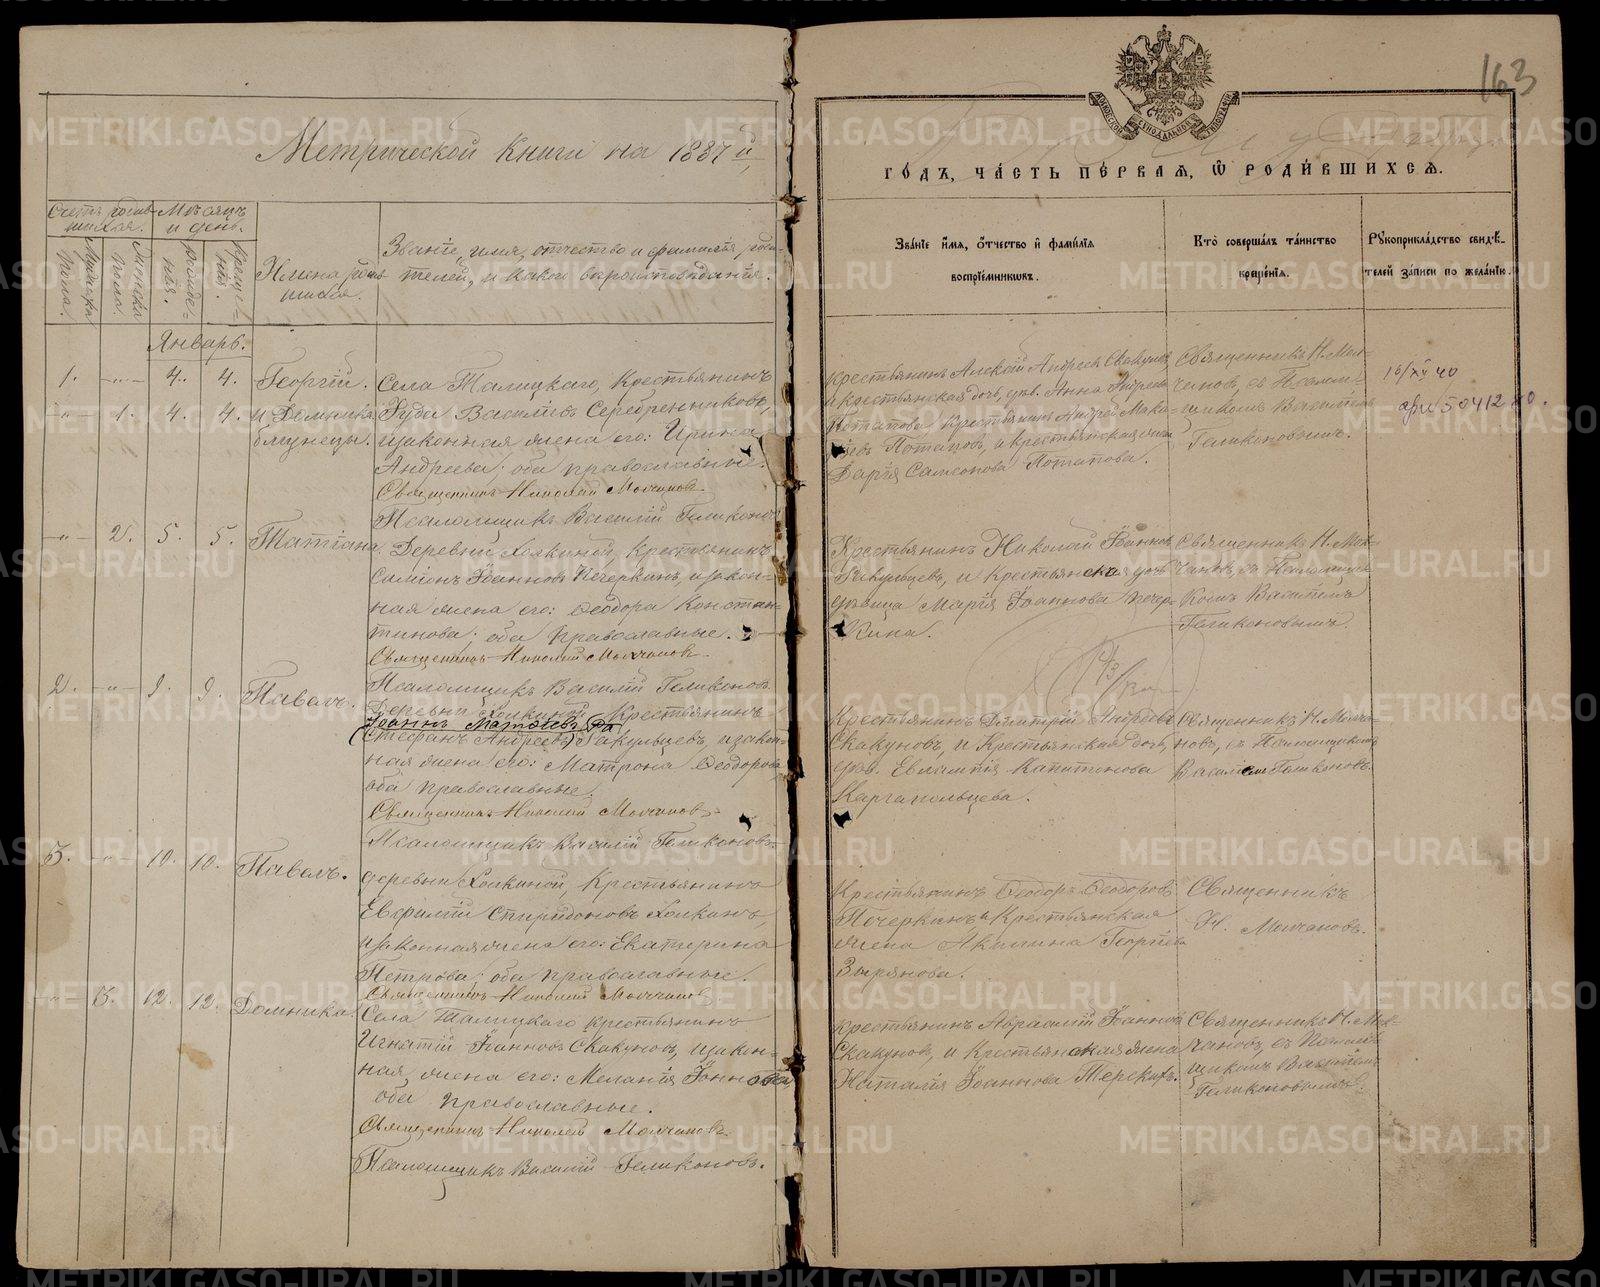 Метрической книги на 1887 й
163
МОСКОВСКОЙ СИНОДАЛЬНОЙ ТИПОГРАФІИ
ГОДЪ, ЧАСТЬ ПЕРВАЯ, Ѿ РОДИВШИХСЯ.
Счетъ родив-
шихся.
Мѣсяцъ
и день.
Мужска
пола.
Женска
пола.
рожде-
нія.
креще-
нія.
Имена роди
шихся.
Званіе, имя, отчество и фамилія роди-
телей, и какого вѣроисповѣданія.
Званіе имя, отчество и фамилія
воспріемниковъ.
Кто совершалъ таинство
крещенія.
Рукоприкладство свидѣ-
телей записи по желанію.
Январь.
1. -„- 4. 4. Георгій.
-„- 1. 4. 4. и Домника
близнецы.
Села Талицкаго, Крестьянинъ
Гурій Василіевъ Серебренниковъ,
и законная жена его: Ирина
Андреева; оба православные.
Священникъ Николай Молчановъ.
Псаломщикъ Василій Геликоновъ
крестьянинъ Алексій Андреевъ Скакуновъ,
и крестьянская дочь, дѣв. Анна Андреева
Потапова; крестьянинъ Андрей Макси-
мовъ Потаповъ, и крестьянская жена
Дарія Самсонова Потапова.
Священникъ Н. Мол-
чановъ, съ Псалом-
щикомъ Василіемъ
Геликоновымъ.
16/XII 40
50412 80.
-„- 2. 5. 5. Татіана.
Деревни Холкиной, Крестьянинъ
Симеонъ Іоанновъ Печеркинъ, и закон-
ная жена его: Ѳеодора Констан-
тинова; оба православные.
Священникъ Николай Молчановъ.
Псаломщикъ Василій Геликоновъ.
Крестьянинъ Николай Іоанновъ
Ракульцевъ, и Крестьянская дочь
дѣвица Марія Іоаннова Печер-
кина.
Священникъ Н. Мол-
чановъ, съ Псаломщи-
комъ Василіемъ
Геликоновымъ.
2. -„- 9. 9. Павелъ.
Деревни Холкиной, Крестьянинъ
Іоаннъ Матѳіевъ Ра
(Стефанъ Андреевъ) Ракульцевъ, и закон-
ная жена его: Матрона Ѳеодорова
оба православные.
Священникъ Николай Молчановъ.
Псаломщикъ Василій Геликоновъ.
Крестьянинъ Димитрій Андреевъ
Скакуновъ, и Крестьянская дочь,
дѣв. Евлампія Капитонова
Каргапольцева.
Священникъ Н. Молча-
новъ, съ Псаломщикомъ
Василіемъ Геликоновъ.
3. -„- 10. 10. Павелъ.
деревни Холкиной, Крестьянинъ
Евфимій Спиридоновъ Холкинъ,
и законная жена его: Екатерина
Петрова; оба православные.
Священникъ Николай Молчановъ.
Крестьянинъ Ѳеодоръ Ѳеодоровъ
Печеркинъ, и Крестьянская
жена Акилина Георгіева
Зырянова.
Священникъ
Н. Молчановъ.
-„- 3. 12. 12. Домника.
Села Талицкаго крестьянинъ
Игнатій Іоанновъ Скакуновъ, и закон-
ная жена его: Меланія Іоаннова
оба православные.
Священникъ Николай Молчановъ.
Псаломщикъ Василій Геликоновъ.
крестьянинъ Авраамій Іоанновъ
Скакуновъ, и Крестьянская жена
Наталія Іоаннова Терскихъ.
Священникъ Н. Мол-
чановъ, съ Псалом-
щикомъ Василіемъ
Геликоновымъ.
METRIKI.GASO-URAL.RU